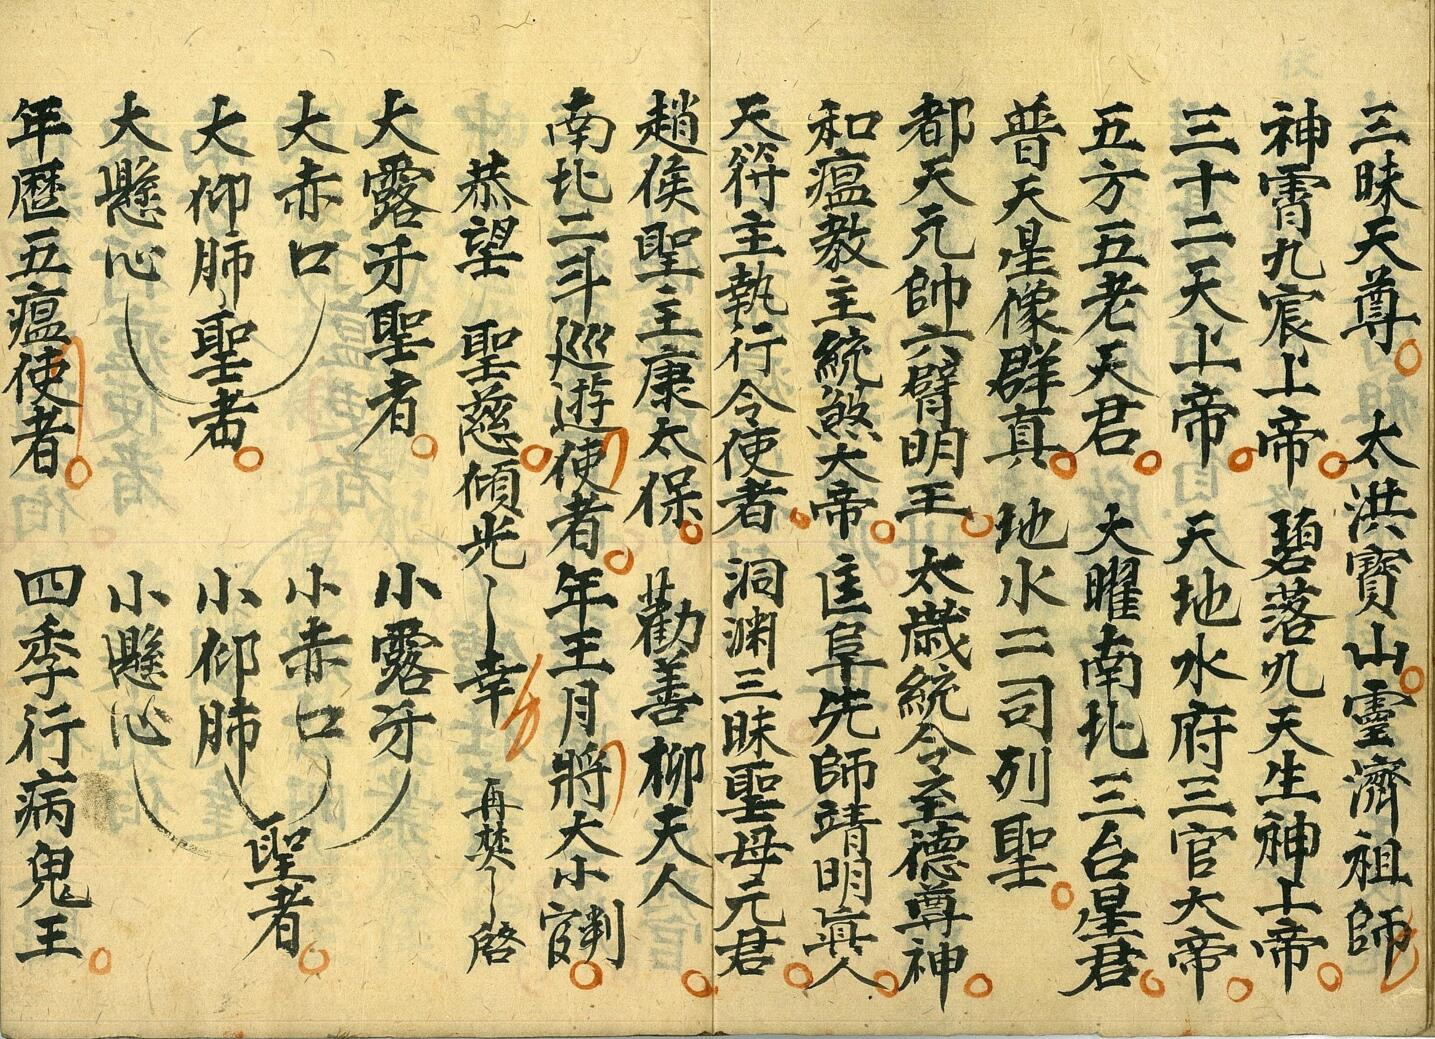 三昧天尊 太洪寶山靈濟祖師
神霄九宸上帝 碧落九天生神上帝
三十二天上帝 天地水府三官大帝
五方五老天君 大曜南北三台星君
普天星像群真 地水二司列聖
都天元帥六臂明王 太歲統令至德尊神
和瘟教主統煞大帝 匡阜先師靖明眞人
天符主執行令使者 洞渊三昧聖母元君
趙侯聖主康太保 勸善柳夫人
南北二斗巡遊使者 年王月將大小判官
恭望 聖慈傾光 幸 再焚 啓
大露牙聖者 小露牙
大赤口 小赤口
大仰肺聖者 小仰肺聖者
大懸心 小懸心
年曆五瘟使者 四季行病鬼王